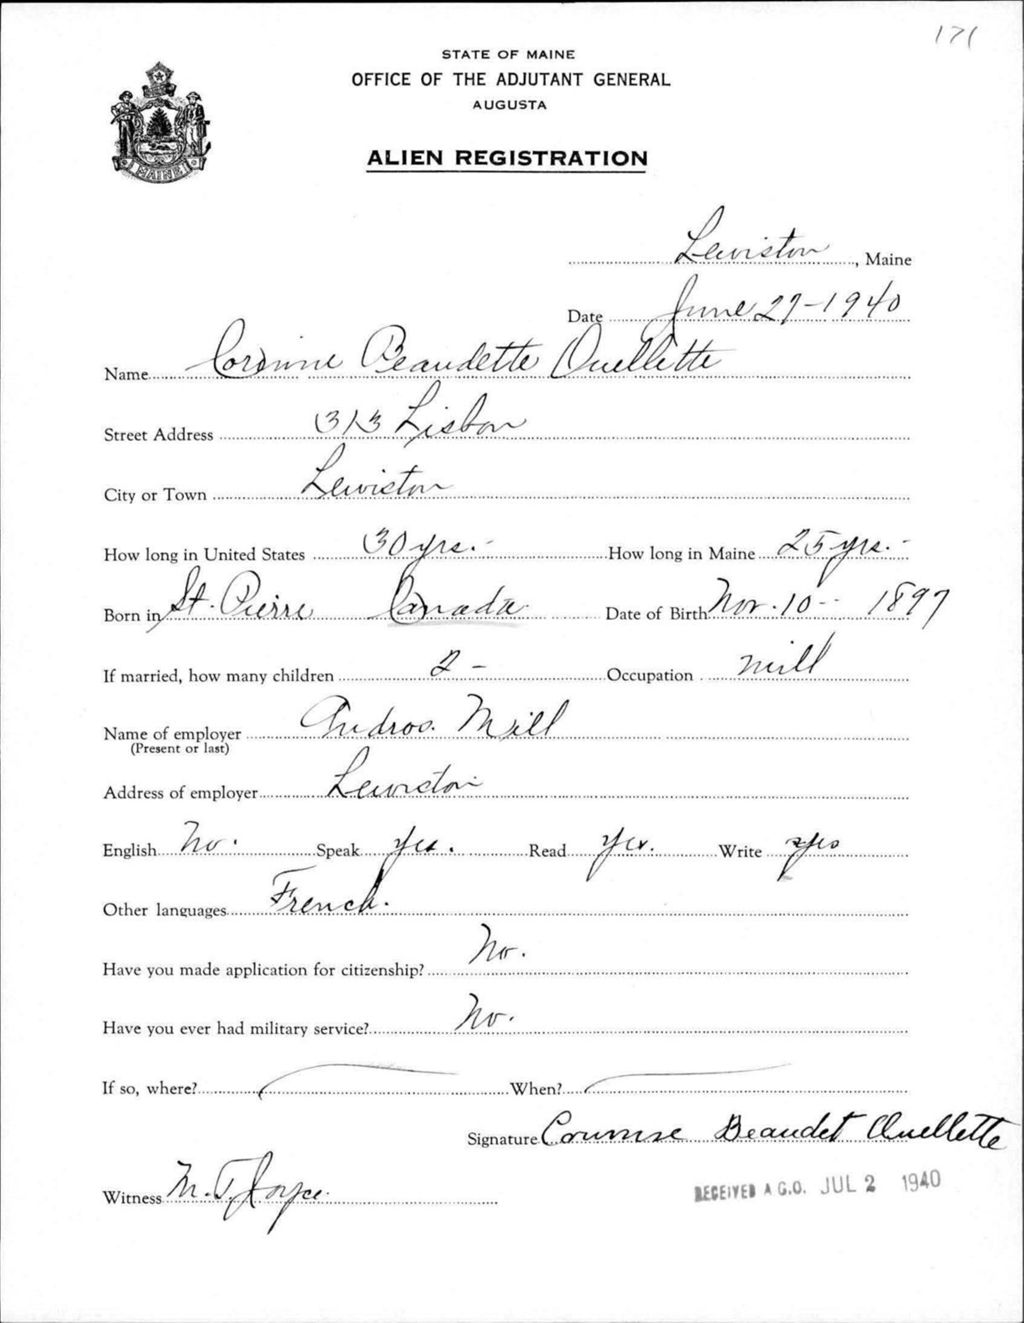 171
STATE OF MAINE
OFFICE OF THE ADJUTANT GENERAL
AUGUSTA
MAINE
ALIEN REGISTRATION
Lewiston, Maine
Date June 27-1940
Name Corinne Beaudette Ouellette
Street Address 313 Lisbon
City or Town Lewiston
How long in United States 30 yrs.- How long in Maine 25 yrs.-
Born in St. Pierre Canada Date of Birth Nov. 10 - 1897
If married, how many children 2 - Occupation mill
Name of employer Andros. Mill
(Present or last)
Address of employer Lewiston
English No. Speak yes. Read Yes. Write yes
Other languages French.
Have you made application for citizenship? No.
Have you ever had military service? No.
If so, where? When?
Signature Corinne Beaudet Ouellette
Witness M. T. Joyce
RECEIVED A.G.O. JUL 2 1940